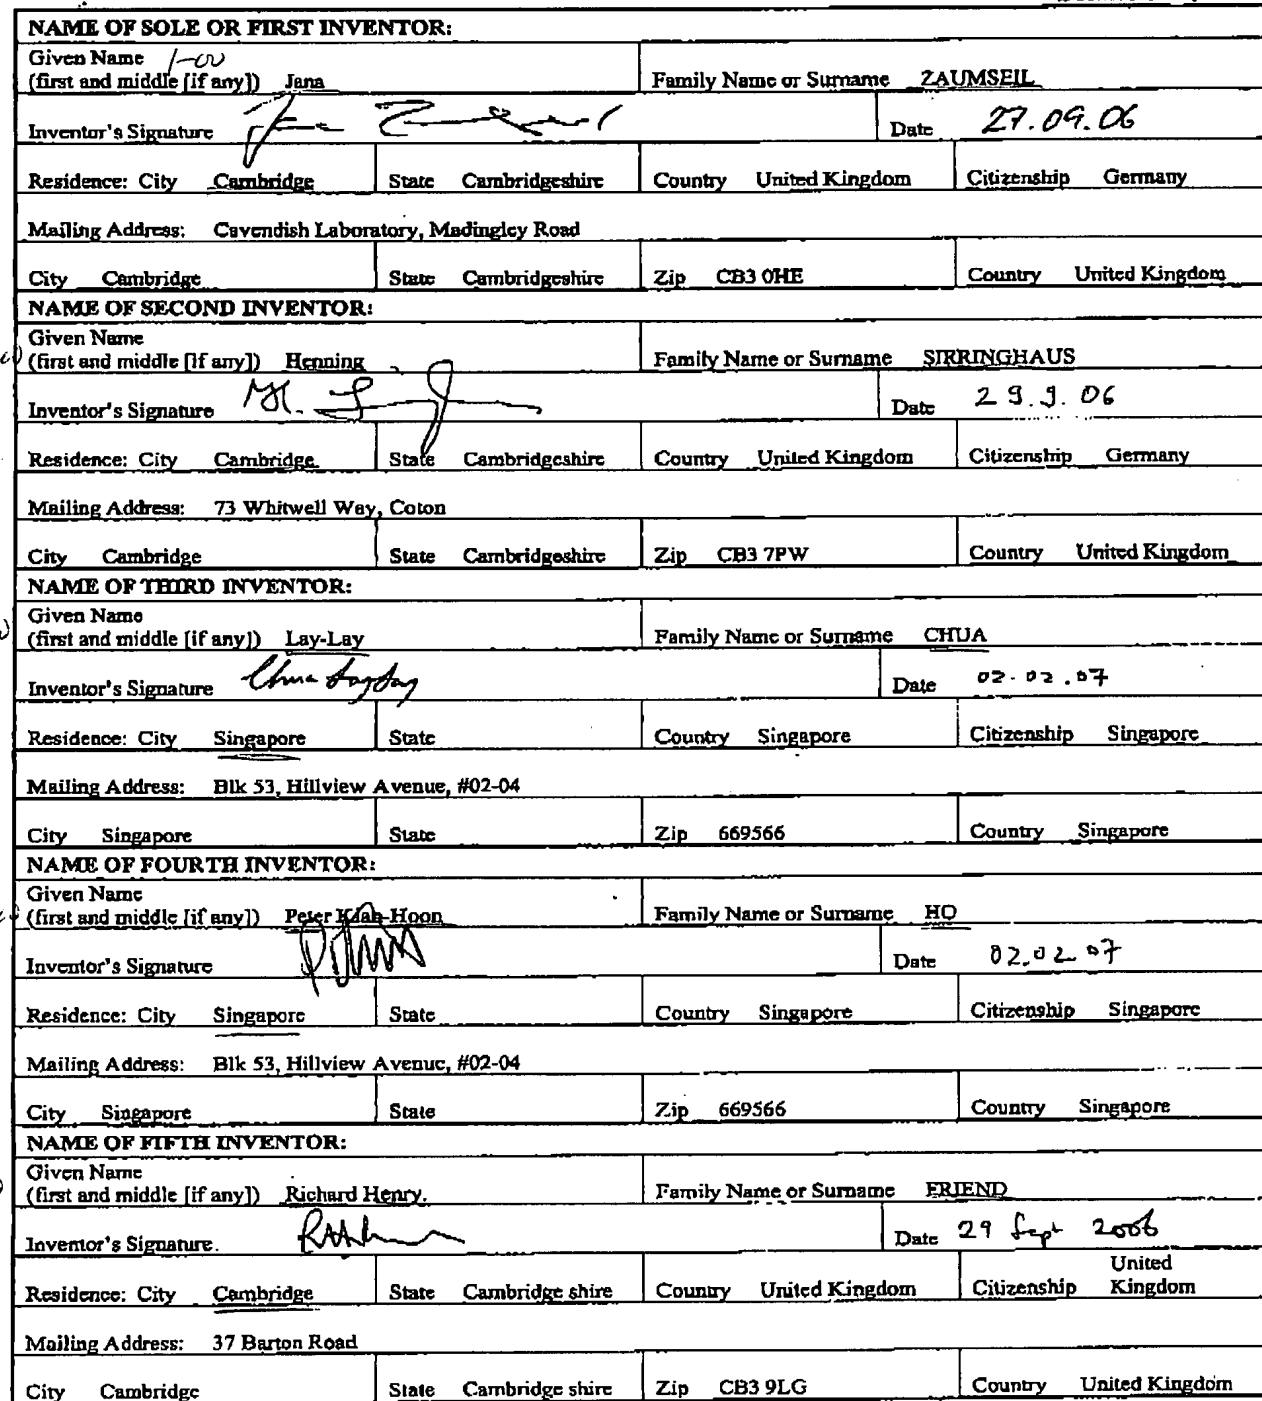 NAME OF SOLE OR FIRST INVENTOR:
Given Name 1-00
(first and middle [if any]) Jana Family Name or Surname ZAUMSEIL
Inventor's Signature Date 27.09.06
Residence: City Cambridge State Cambridgeshire Country United Kingdom Citizenship Germany
Mailing Address: Cavendish Laboratory, Madingley Road
City Cambridge State Cambridgeshire Zip CB3 0HE Country United Kingdom
NAME OF SECOND INVENTOR:
Given Name
(first and middle [if any]) Henning Family Name or Surname SIRRINGHAUS
Inventor's Signature Date 29.9.06
Residence: City Cambridge State Cambridgeshire Country United Kingdom Citizenship Germany
Mailing Address: 73 Whitwell Way, Coton
City Cambridge State Cambridgeshire Zip CB3 7PW Country United Kingdom
NAME OF THIRD INVENTOR:
Given Name
(first and middle [if any]) Lay-Lay Family Name or Surname CHUA
Inventor's Signature Chua Lay Lay Date 02.02.07
Residence: City Singapore State Country Singapore Citizenship Singapore
Mailing Address: Blk 53, Hillview Avenue, #02-04
City Singapore State Zip 669566 Country Singapore
NAME OF FOURTH INVENTOR:
Given Name
(first and middle [if any]) Peter Kian-Hoon Family Name or Surname HO
Inventor's Signature Date 02.02.07
Residence: City Singapore State Country Singapore Citizenship Singapore
Mailing Address: Blk 53, Hillview Avenue, #02-04
City Singapore State Zip 669566 Country Singapore
NAME OF FIFTH INVENTOR:
Given Name
(first and middle [if any]) Richard Henry. Family Name or Surname FRIEND
Inventor's Signature. Date 29 Sept 2006
Residence: City Cambridge State Cambridge shire Country United Kingdom Citizenship United Kingdom
Mailing Address: 37 Barton Road
City Cambridge State Cambridge shire Zip CB3 9LG Country United Kingdom